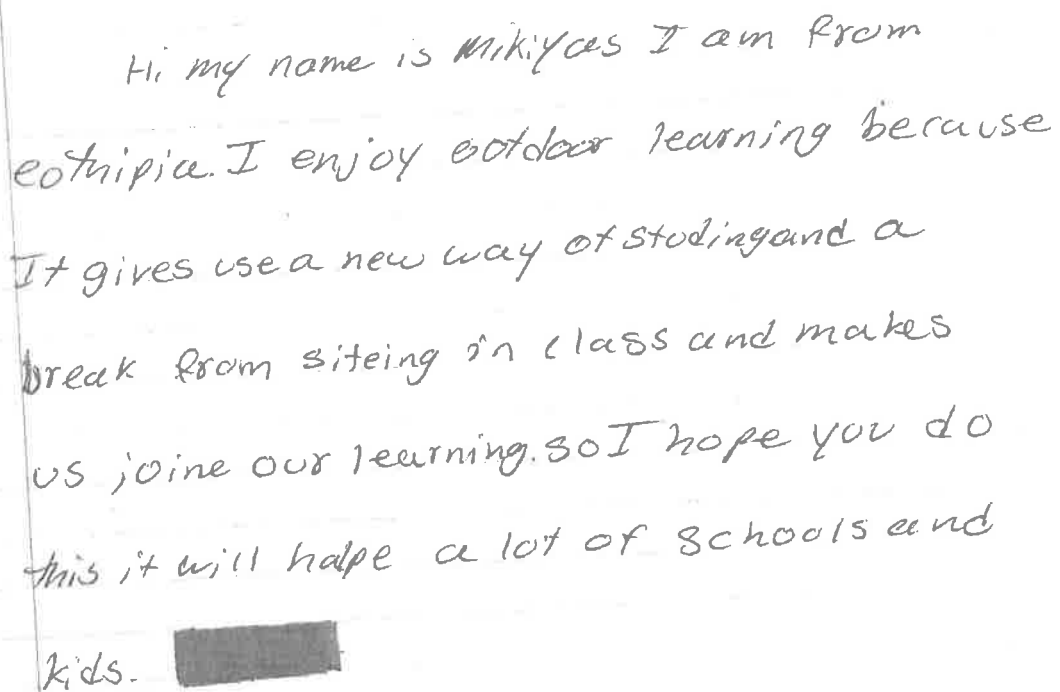 Hi my name is Mikiyas I am from
eothipia. I enjoy ootdoor learning because
It gives use a new way of studingand a
break from siteing in class and makes
us joine our learning. so I hope you do
this it will halpe a lot of schools and
kids.